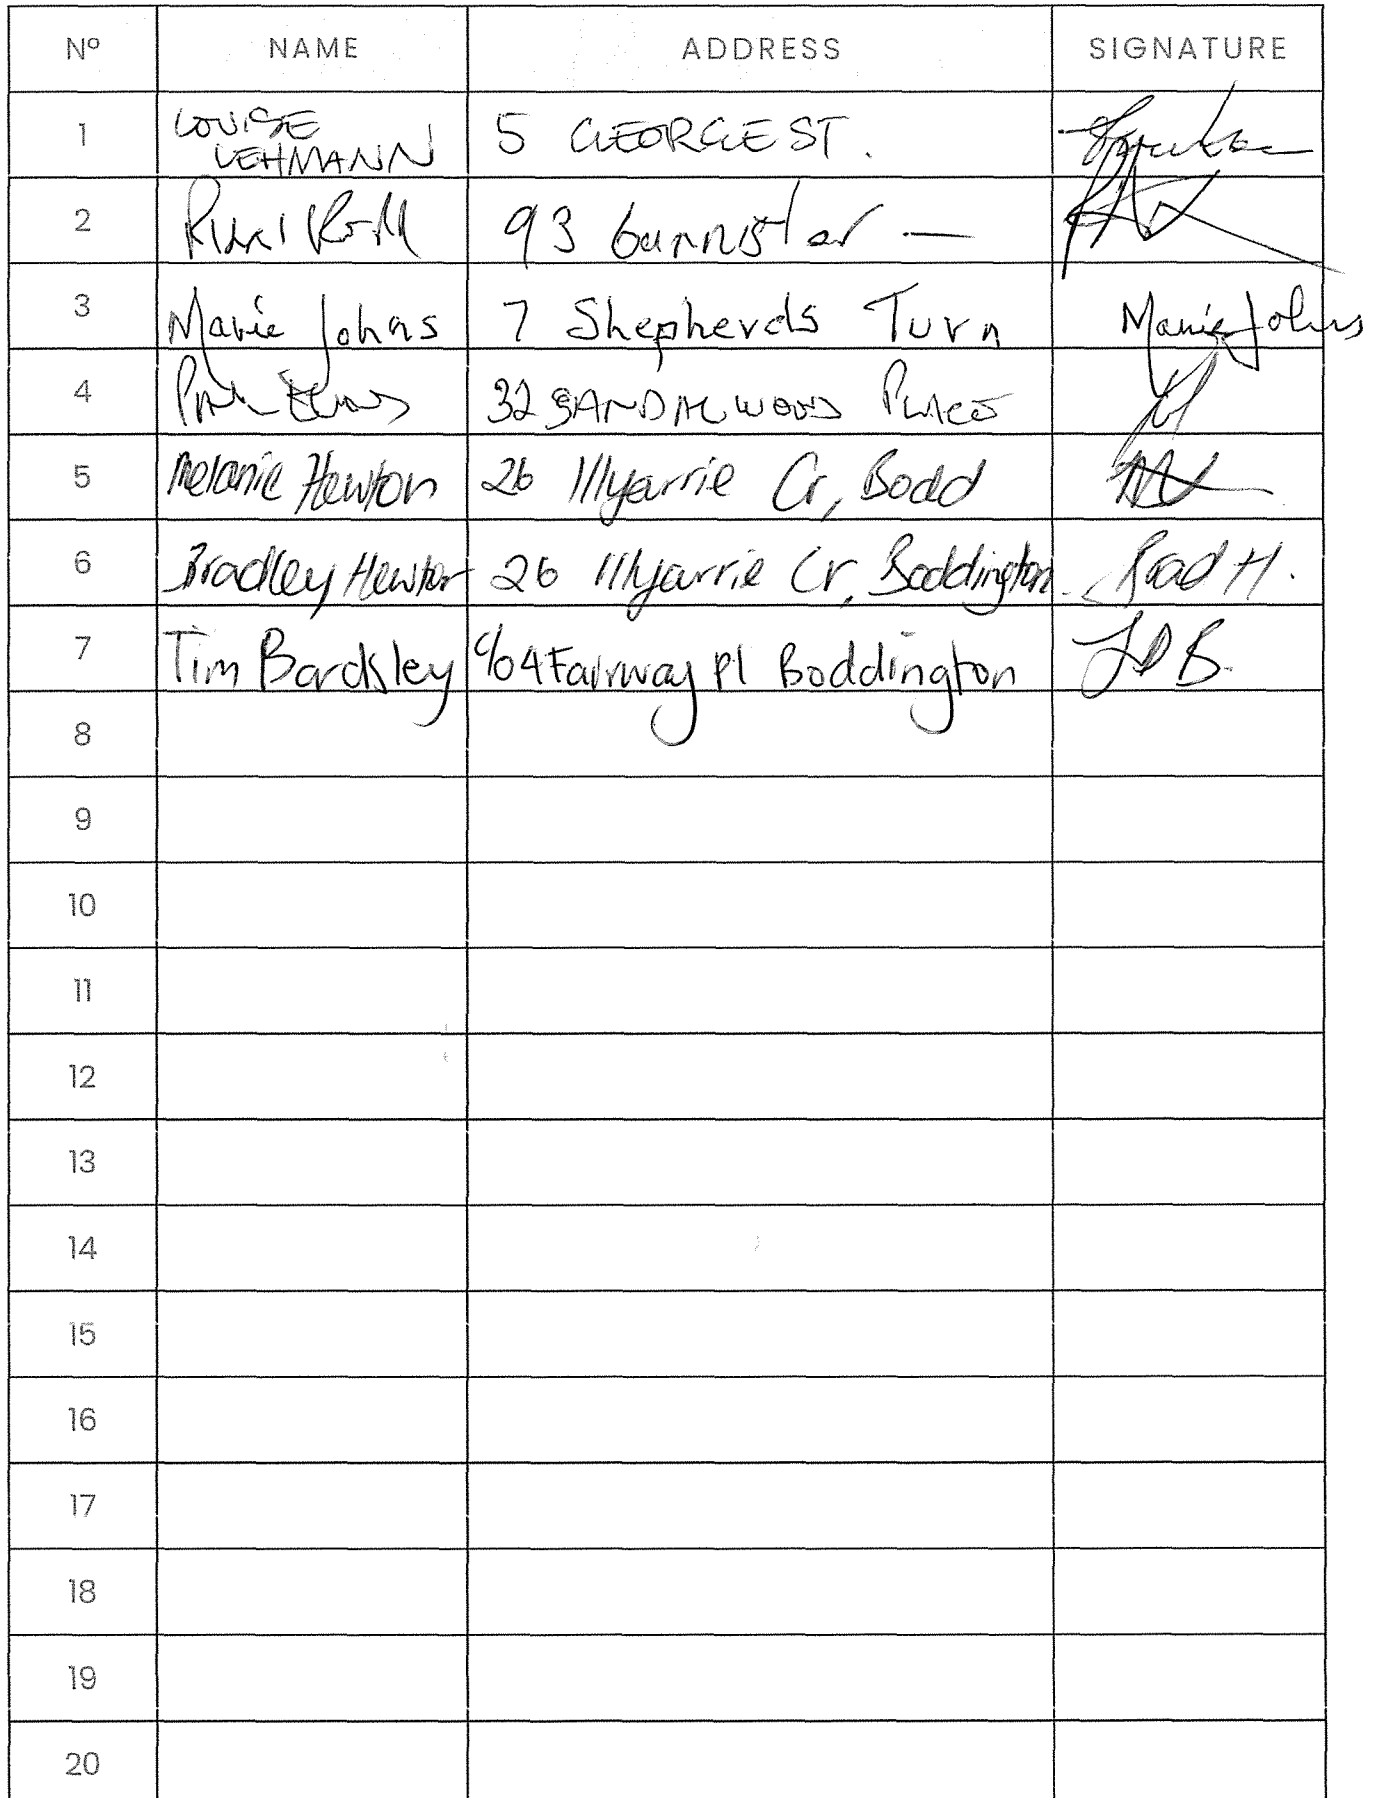 Nº NAME ADDRESS SIGNATURE
1 LOUISE LEHMANN 5 GEORGE ST.
2 93 bannister —
3 Marie Johns 7 Shepherds Turn Marie Johns
4 32 SANDALWOOD PLACE
5 Melanie Hewton 26 Illyarrie Cr, Bodd
6 Bradley Hewton 26 Illyarrie Cr, Boddington Brad H.
7 Tim Bardsley c/o 4 Fairway Pl Boddington
8
9
10
11
12
13
14
15
16
17
18
19
20